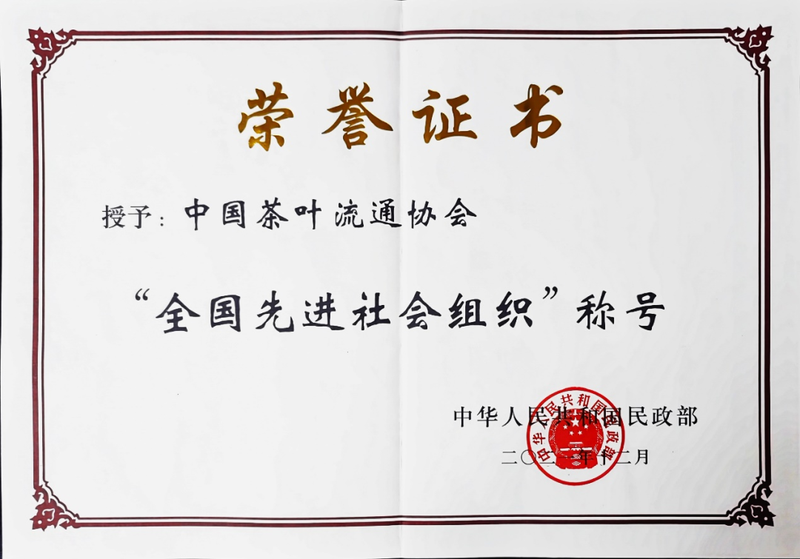 荣誉证书
授予：中国茶叶流通协会
“全国先进社会组织”称号
中华人民共和国民政部
二〇二一年十二月
中华人民共和国民政部